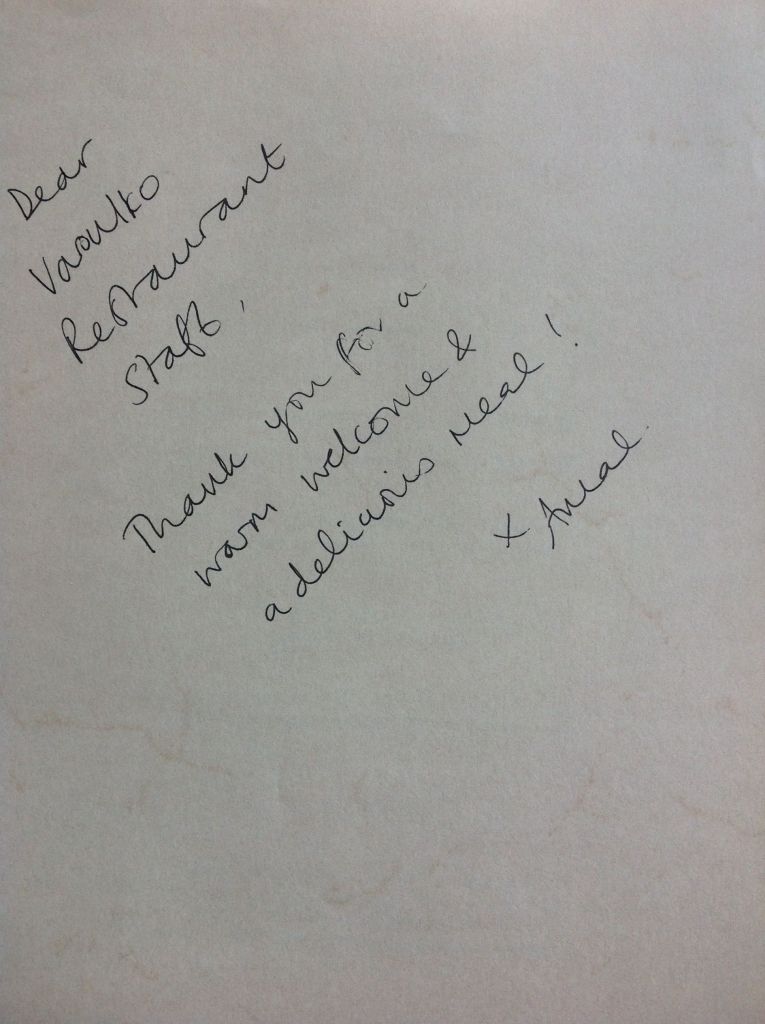 Dear
Varoulko
Restaurant
Staff,
Thank you for a
warm welcome &
a delicious meal!
x Amal